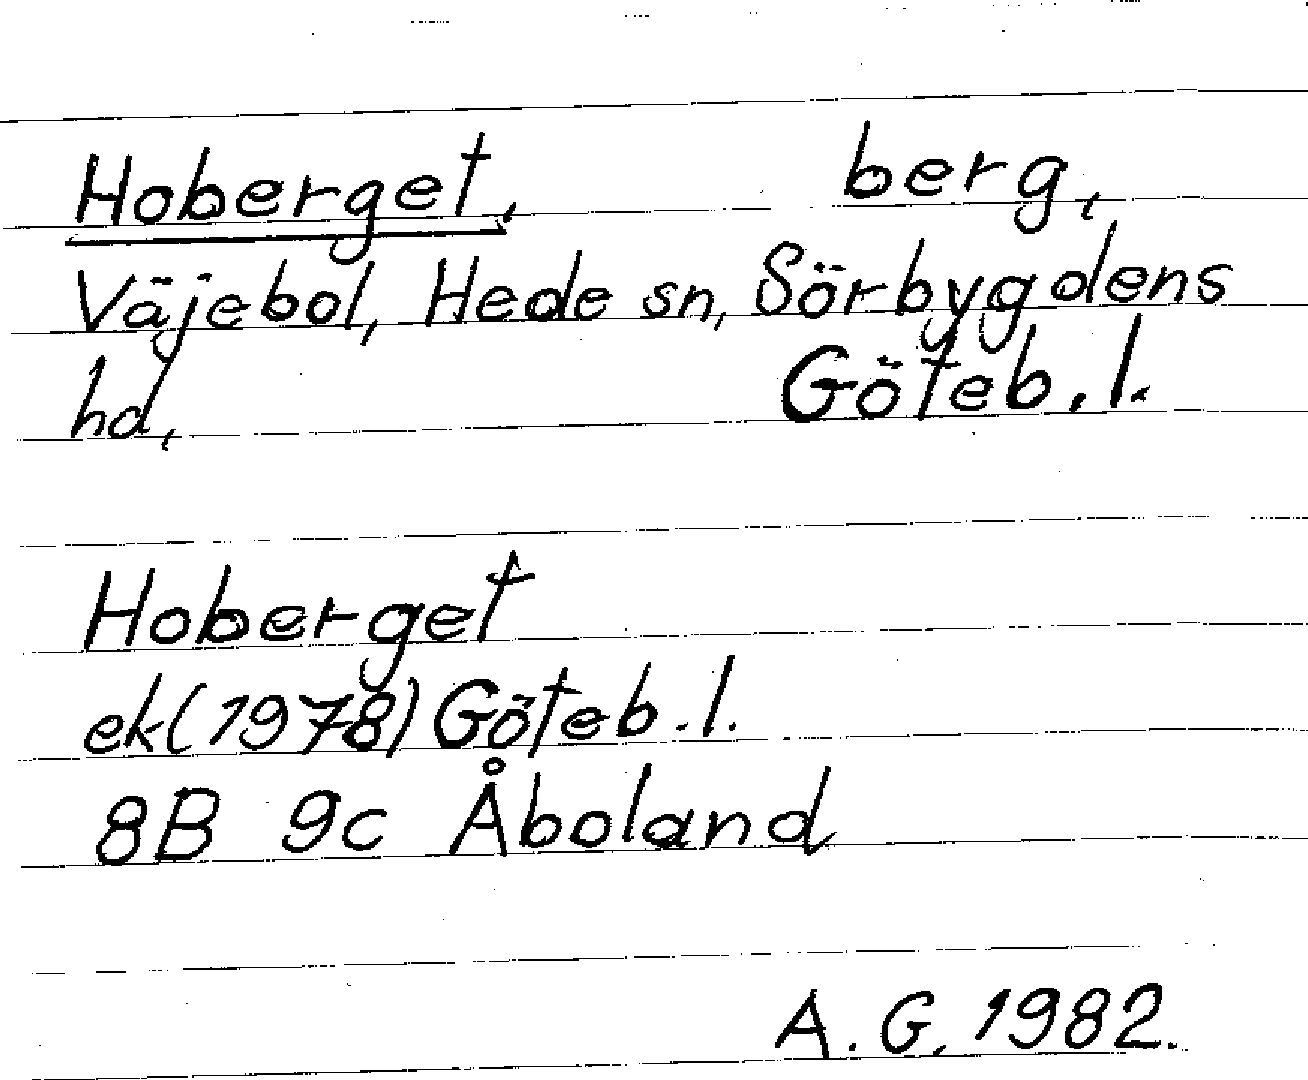 Hoberget, berg,
Väjebol, Hede sn, Sörbygdens
hd, Göteb. l.
Hoberget
ek (1978) Göteb. l.
8B 9c Åboland
A. G. 1982.